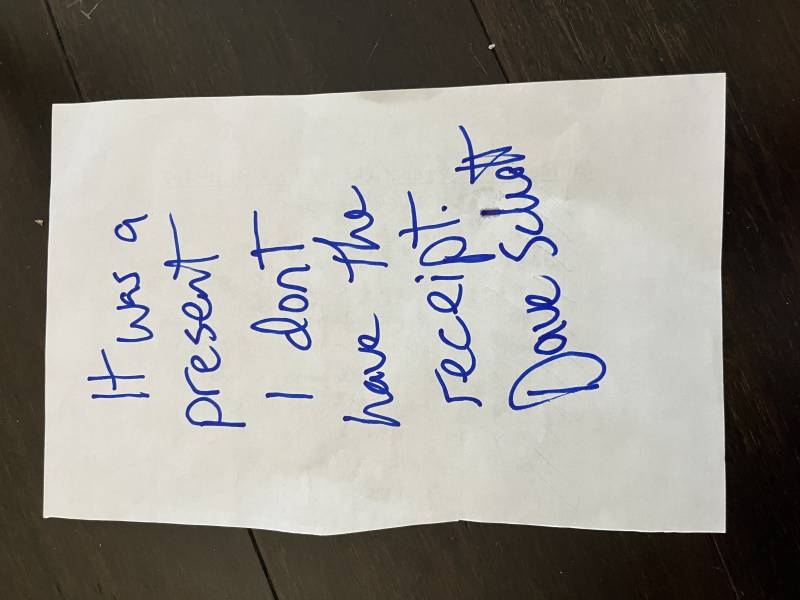 It was a
present
I dont
have the
receipt.
Dave